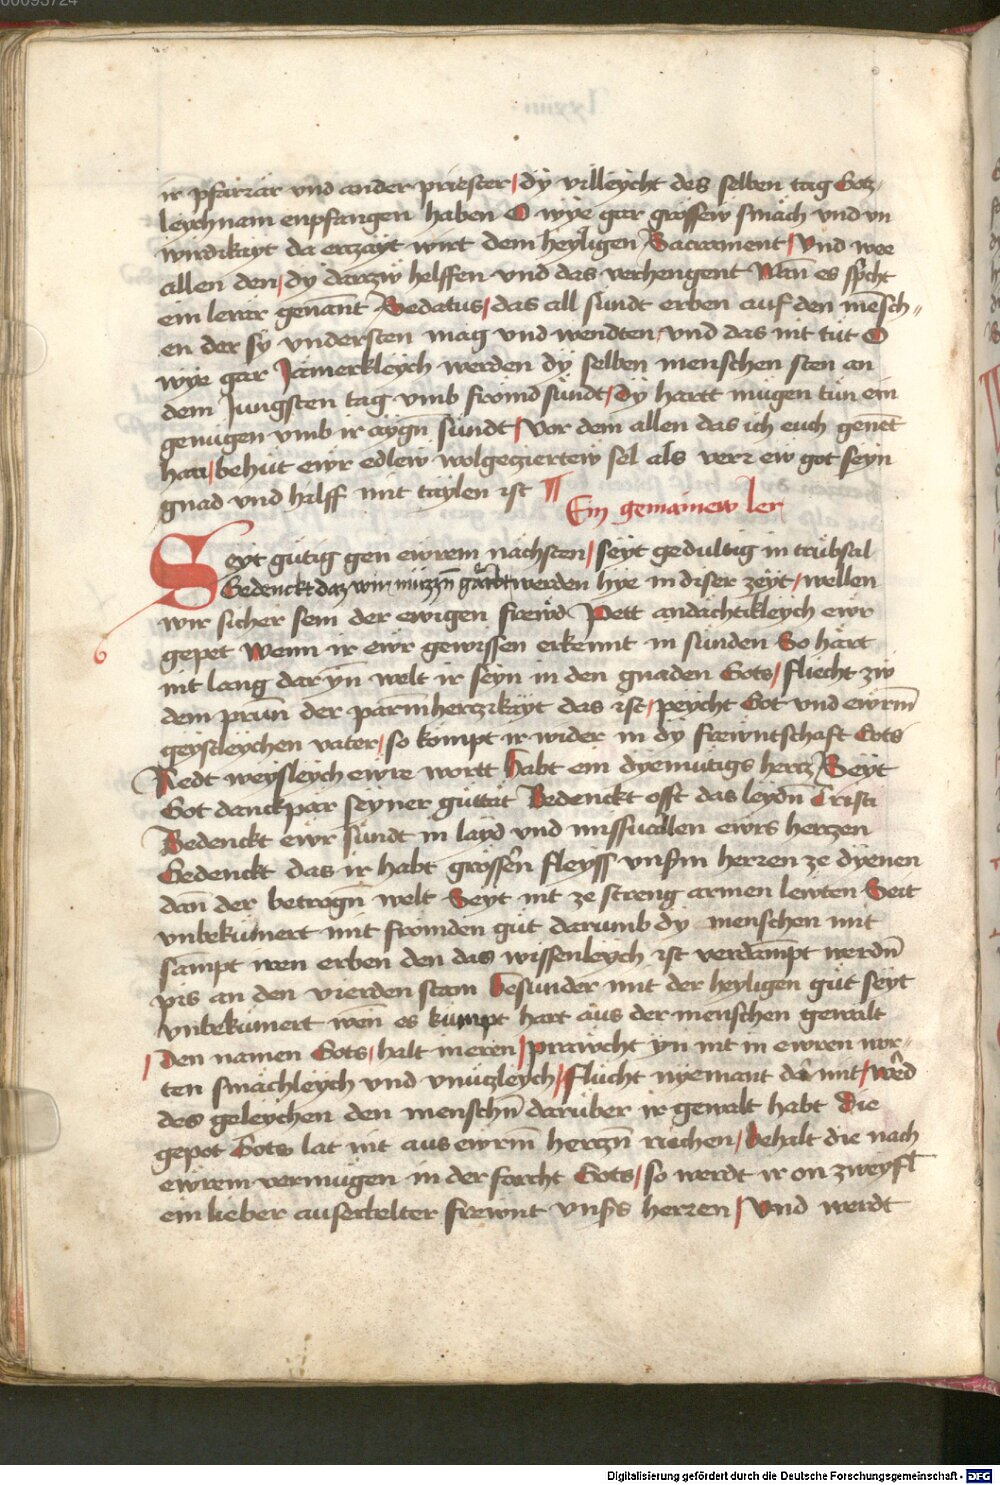 00093724
ir pfarrär vnd ander priester / dÿ villeÿcht des selben tag Gotz
leychnam enpfangen haben O wÿe gar grössew smäch vnd vn
wirdikayt da erczaÿt wirt dem heyligen Sacrament / Vnd wee
allen den / dÿ darzw helffen vnd das verhengent Wan̄ es spͥcht
ein lerär genan̄t Sedatus / das all sündt erben auf den mēsch〃
en der sÿ vndersten mag vnd wendten / vnd das nit tut O
wÿe gar Jämerkleÿch werden dÿ selben menschen sten an
dem Jungsten tag vmb frömd sündt / dÿ hartt mügen tün ein
genügen vmb ir aÿgn̄ sündt / Vor dem allen das ich euch genēt
han / behüt ewr edlew wolgecziertew sel als verr ew got seyn
gnad vnd hilff mit taylen ist
Ein gemainew ler
Seyt gütig gen ewrem nächsten / seÿt gedultig in trübsal
Gedenckt daz wir müzzn̄ werden hÿe in diser zeÿt / wellen
wir sicher sein der ewigen frewd Pett andächtikleÿch ewr
gepet Wenn ir ewr gewissen erkennt in sünden So hart
nit lang dar ÿn̄ welt ir seÿn in den gnaden Gots / fliecht zw
dem prun̄ der parm̄herczikäyt das ist / peÿcht Got vnd ewrm̄
geystleÿchen vater / so kompt ir wider in dÿ frewntschaft Gots
Redt weÿsleÿch ewre wortt habt ein dÿemütigs hercz Seÿt
Got danckpär seÿner güttät Bedenckt offt das leÿdn̄ Cristi
Bedenckt ewr sündt in layd vnd missuallen ewrs herczen
Gedenckt das ir habt grössern̄ fleÿss vnsm̄ herren ze dÿenen
dan̄ der betrogn̄ welt Seyt nit ze streng armen lewten Seit
vnbekümert mit frömden güt darumb dy menschen mit
sampt iren erben den das wissenleych ist verdampt werdn̄
pis an den vierden stam besunder mit der heyligen güt seyt
vnbekümert wen̄ es kumpt hart aus der menschen gewalt
/ den namen Gots / halt in eren / prawcht ÿn nit in ewren wor-
ten smächleych vnd vnützleych / flücht nÿemant da mit / wêd
des geleÿchen den menschn̄ darüber ir gewalt habt die
gepot Gots lat nit aus ewrm̄ herczn̄ riechen / behalt die nach
ewrem vermügen in der forcht Gots / so werdt ir on zweyfl
ein lieber auserbelter frewnt vnsͬs herren / Vnd werdt
Digitalisierung gefördert durch die Deutsche Forschungsgemeinschaft - DFG